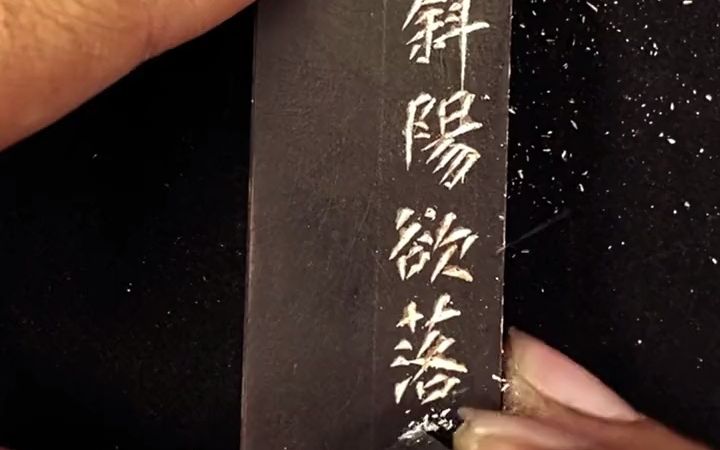 斜陽欲落